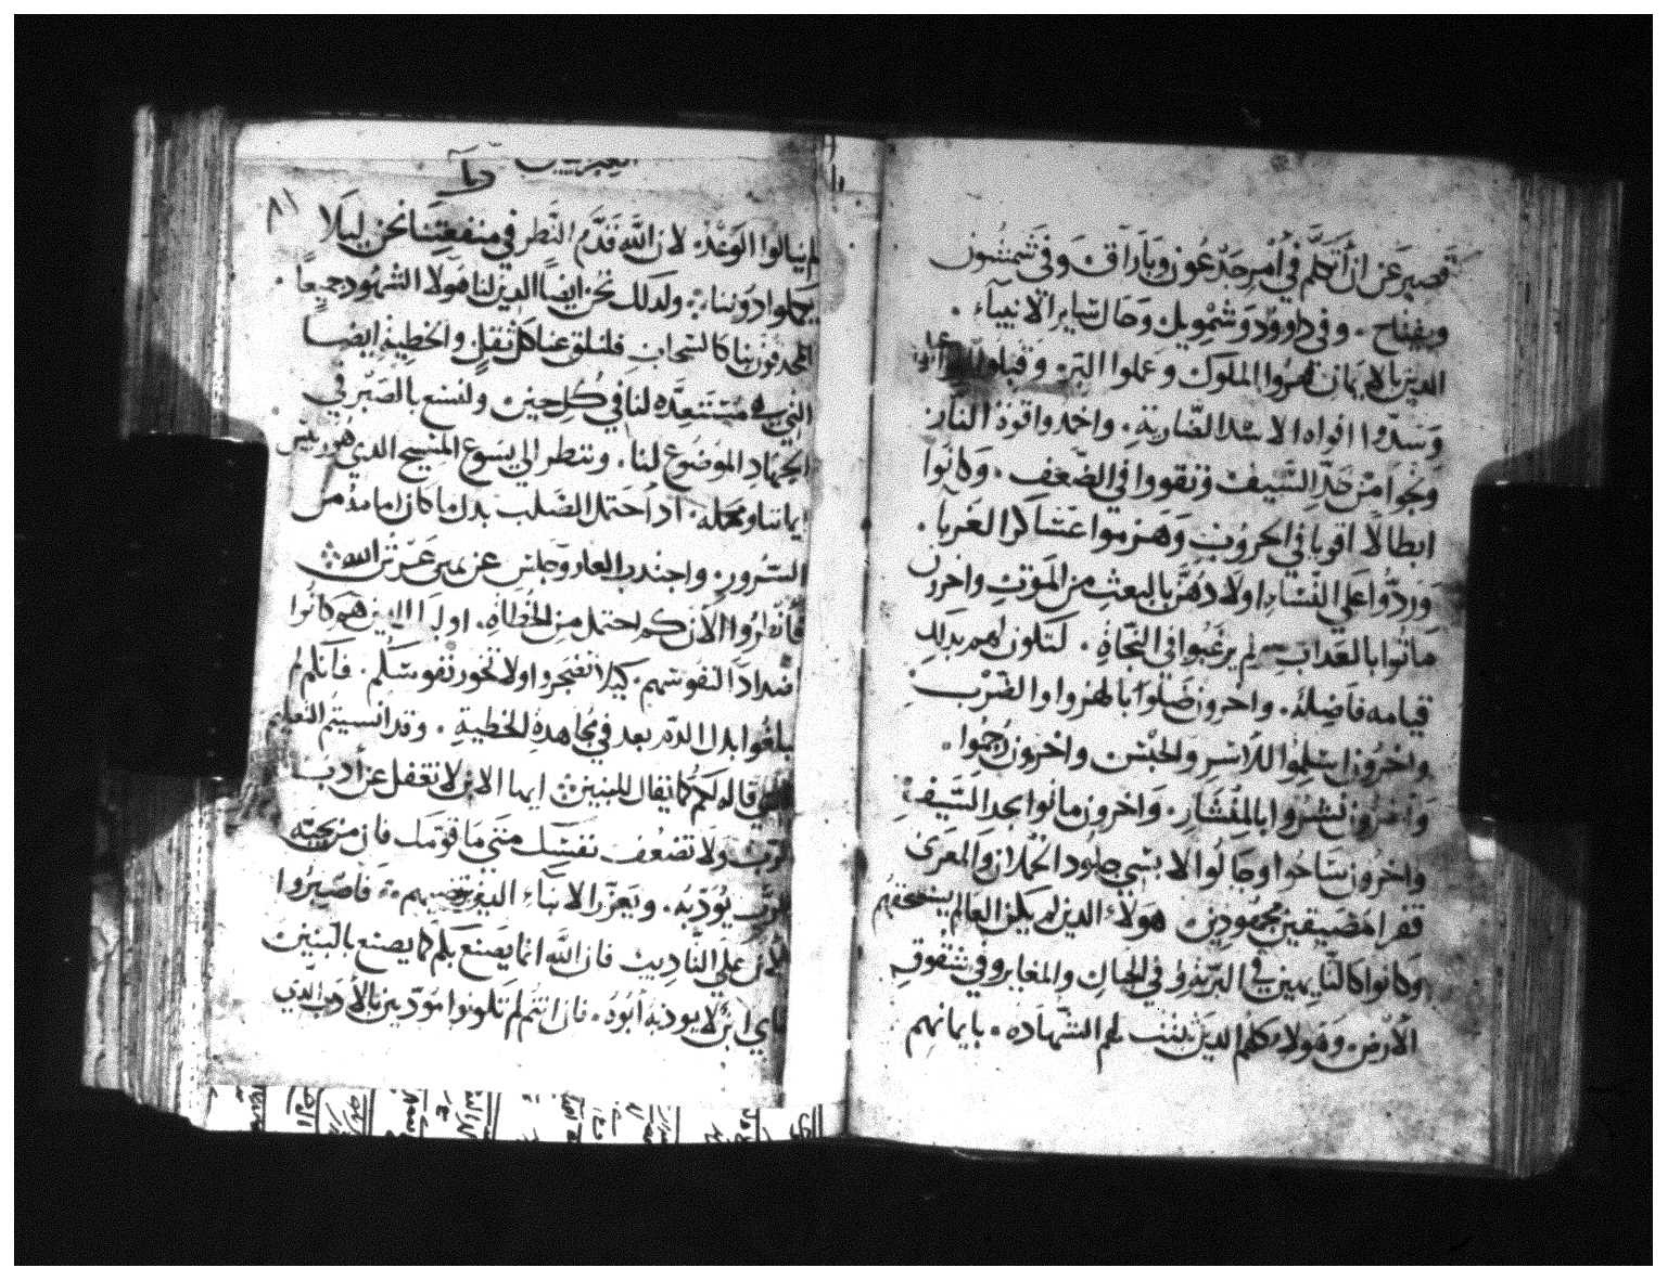 قصير عن ان اتكلم في امر جدعون وباراق وفي شمشون
ويفتاح . وفي داوود وشمويل وحال ساير الانبياء .
الدين بالايمان قهروا الملوك وعملوا البر . وقبلوا
وسدوا افواه الاسد الضارية . واخمدوا قوة النار
ونجوا من حد السيف وتقووا في الضعف . وكانوا
ابطالا اقويا في الحروب وهزموا عساكر الغربا .
وردوا على النساء اولادهن بالبعث من الموت واخرون
ماتوا بالعداب ولم يرغبوا في النجاة . لتكون لهم بدلك
قيامه فاضلة . واخرون صلوا بالهزوا والضرب
واخرون اسلموا للاسر والحبس واخرون رجموا .
واخرون نشروا بالمنشار . واخرون ماتوا بحد السيف
واخرون ساحوا وجالوا لابسي جلود الحملان والمعزى
فقرا مضيقين مجهودين هولاء الدين لم يكن العالم يستحقهم
وكانوا كالتايهين في البرية وفي الجبال والمغاير وفي شقوق
الارض . وهولاء كلهم الدين ثبتت لهم الشهاده . بايمانهم
العبرانيين
٨١
لم ينالوا الوعد . لان الله قدم النظر في منفعتنا نحن ليلا
يكملوا دوننا . ولدلك نحن ايضا الدين لنا هولاء الشهود جميعا .
المحدقون بنا كالسحاب فلنلق عنا كل ثقل والخطية ايضا
التي هي مستعده لنا في كل حين ولنسع بالصبر في
الجهاد الموضوع لنا . وننظر الى يسوع المسيح الدي هو رييس
ايماننا ومكمله . اد احتمل الصلب بدل ما كان امامه من
السرور . واجلس عن يمين عرش الله
فانظروا الان كم احتمل من الخطاة . اوليك الدين هم كانوا
اضدادا لنفوسهم . كيلا تضجروا ولا تخور نفوسكم . فانكم لم
تبلغوا بدل الدم بعد في مجاهدة الخطية . وقد انسيتم التعليم
الدي قاله لكم كما يقال للبنين ايها الابن لا تغفل عن ادب
الرب ولا تضعف نفسك متى ما قومك فان من يحبه
الرب يودبه . ويعزر الابناء الدين يرتضيهم فاصبروا
الان على التاديب فان الله انما يصنع بكم كما يصنع بالبنين
فاي ابن لا يودبه ابوه . فان انتم لم تكونوا مودبين بالادب الدي